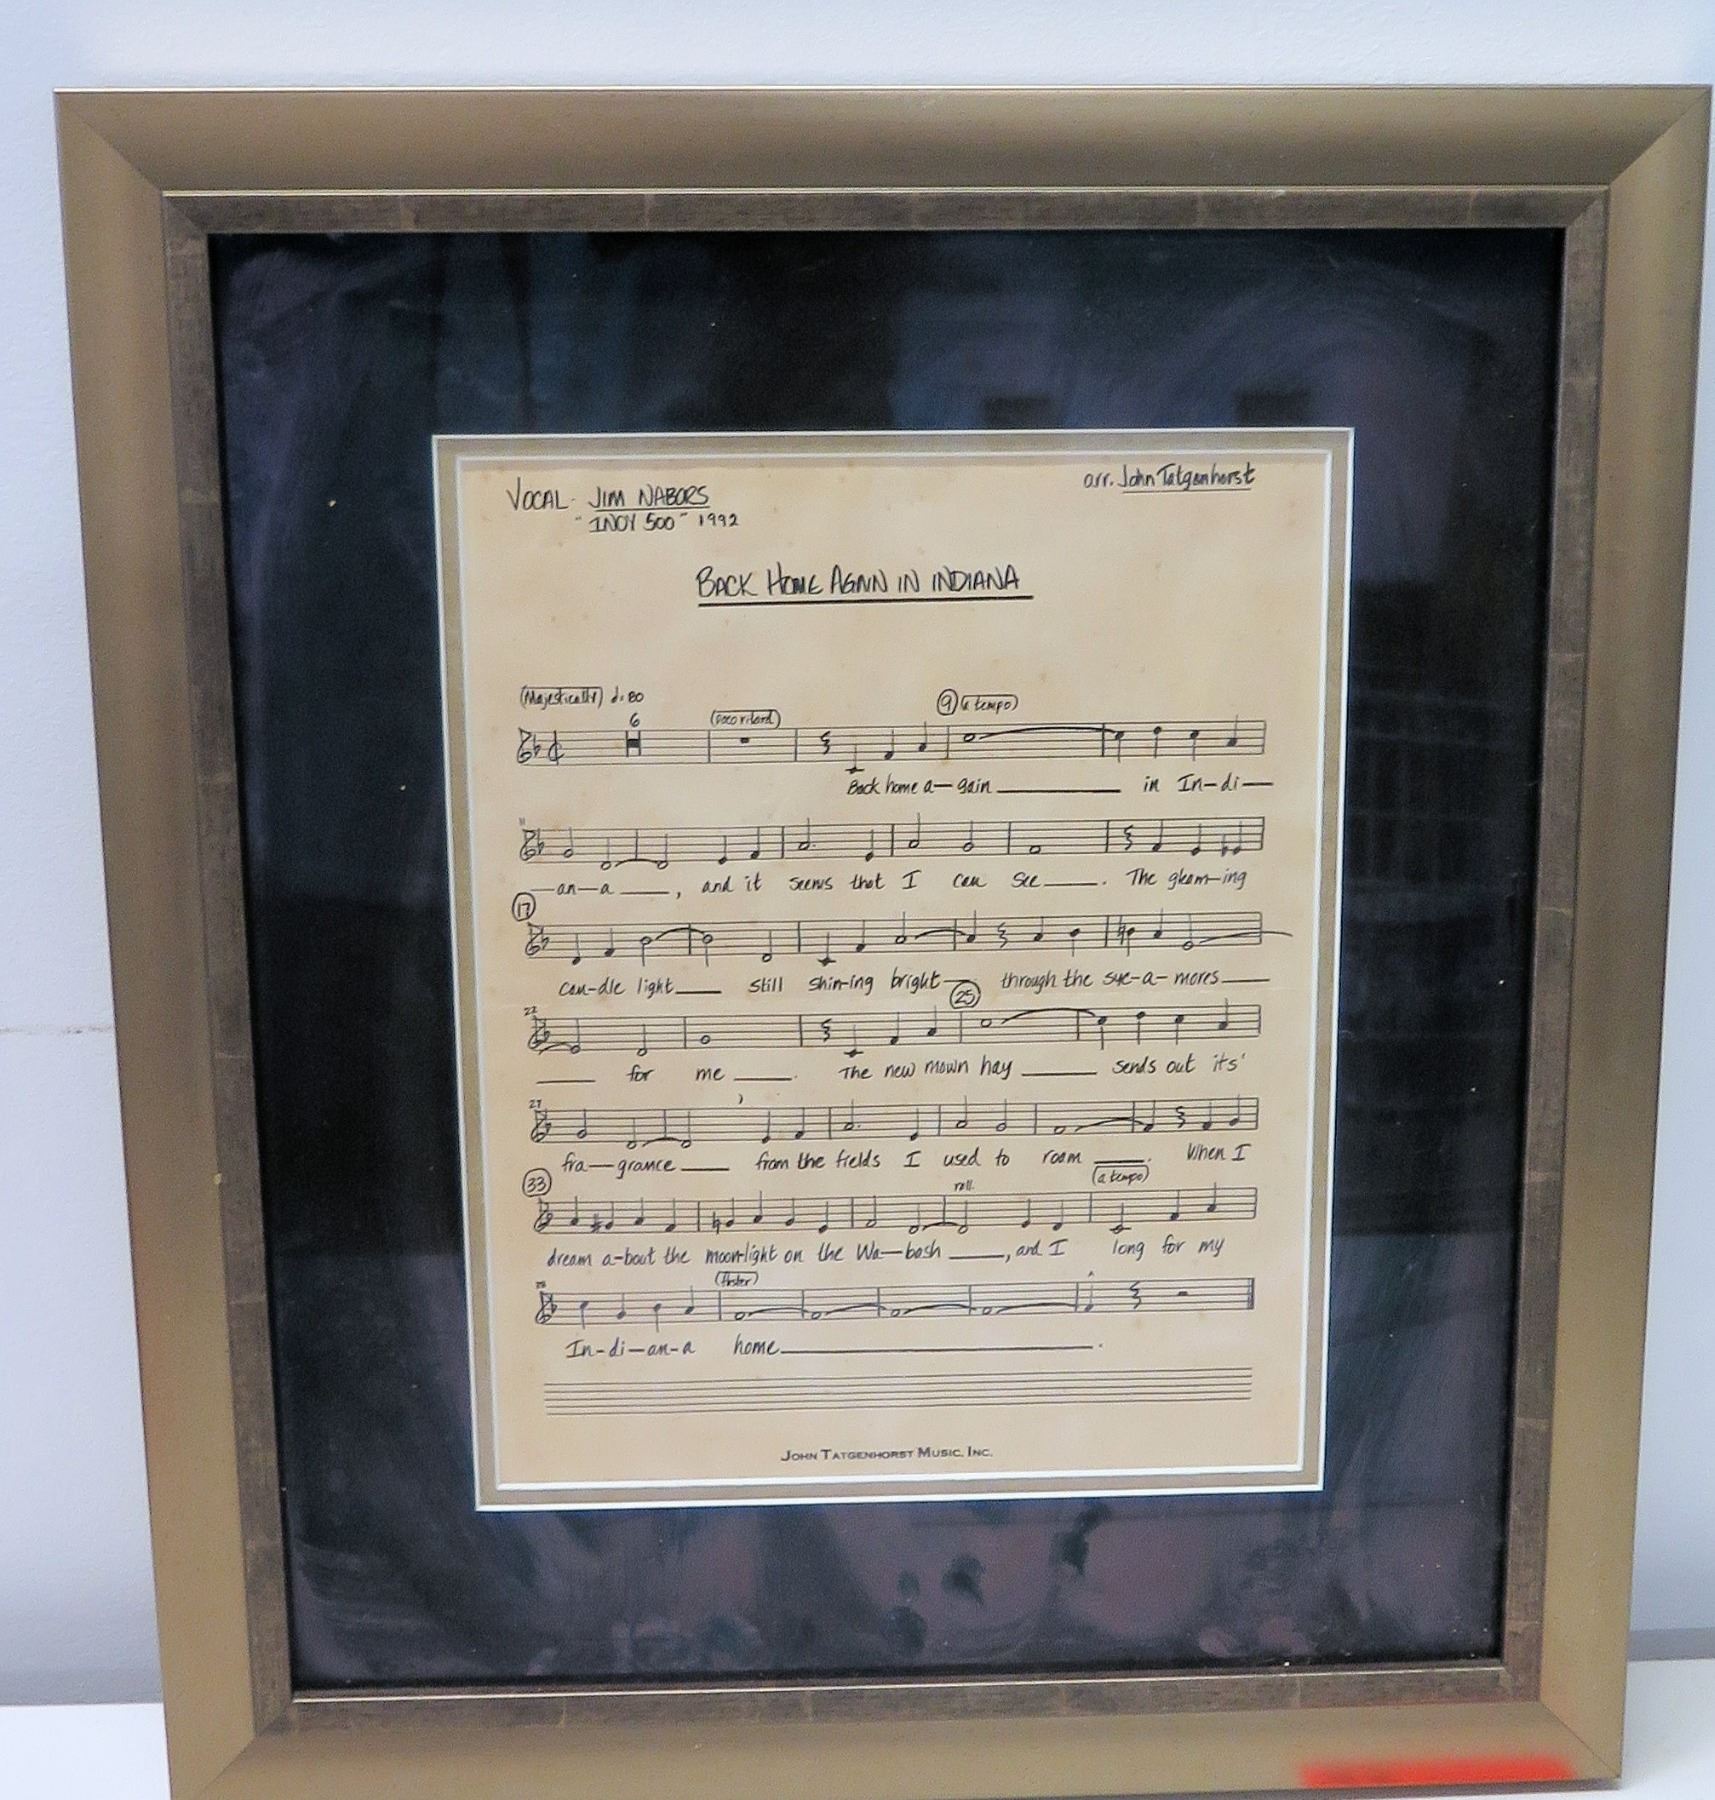 VOCAL- JIM NABORS
arr. John Tatgenhorst
"INDY 500" 1992
BACK HOME AGAIN IN INDIANA
(Majestically) = 80
6 (poco ritard) 9 (a tempo)
Back home a-gain in In-di-
11
-an-a, and it seems that I can see. The gleam-ing
17
can-dle light still shin-ing bright through the syc-a-mores
22 25
for me. The new mown hay sends out its'
27
fra-grance from the fields I used to roam. When I
33 rall. (a tempo)
dream a-bout the moon-light on the Wa-bash, and I long for my
(faster)
In-di-an-a home.
JOHN TATGENHORST MUSIC, INC.